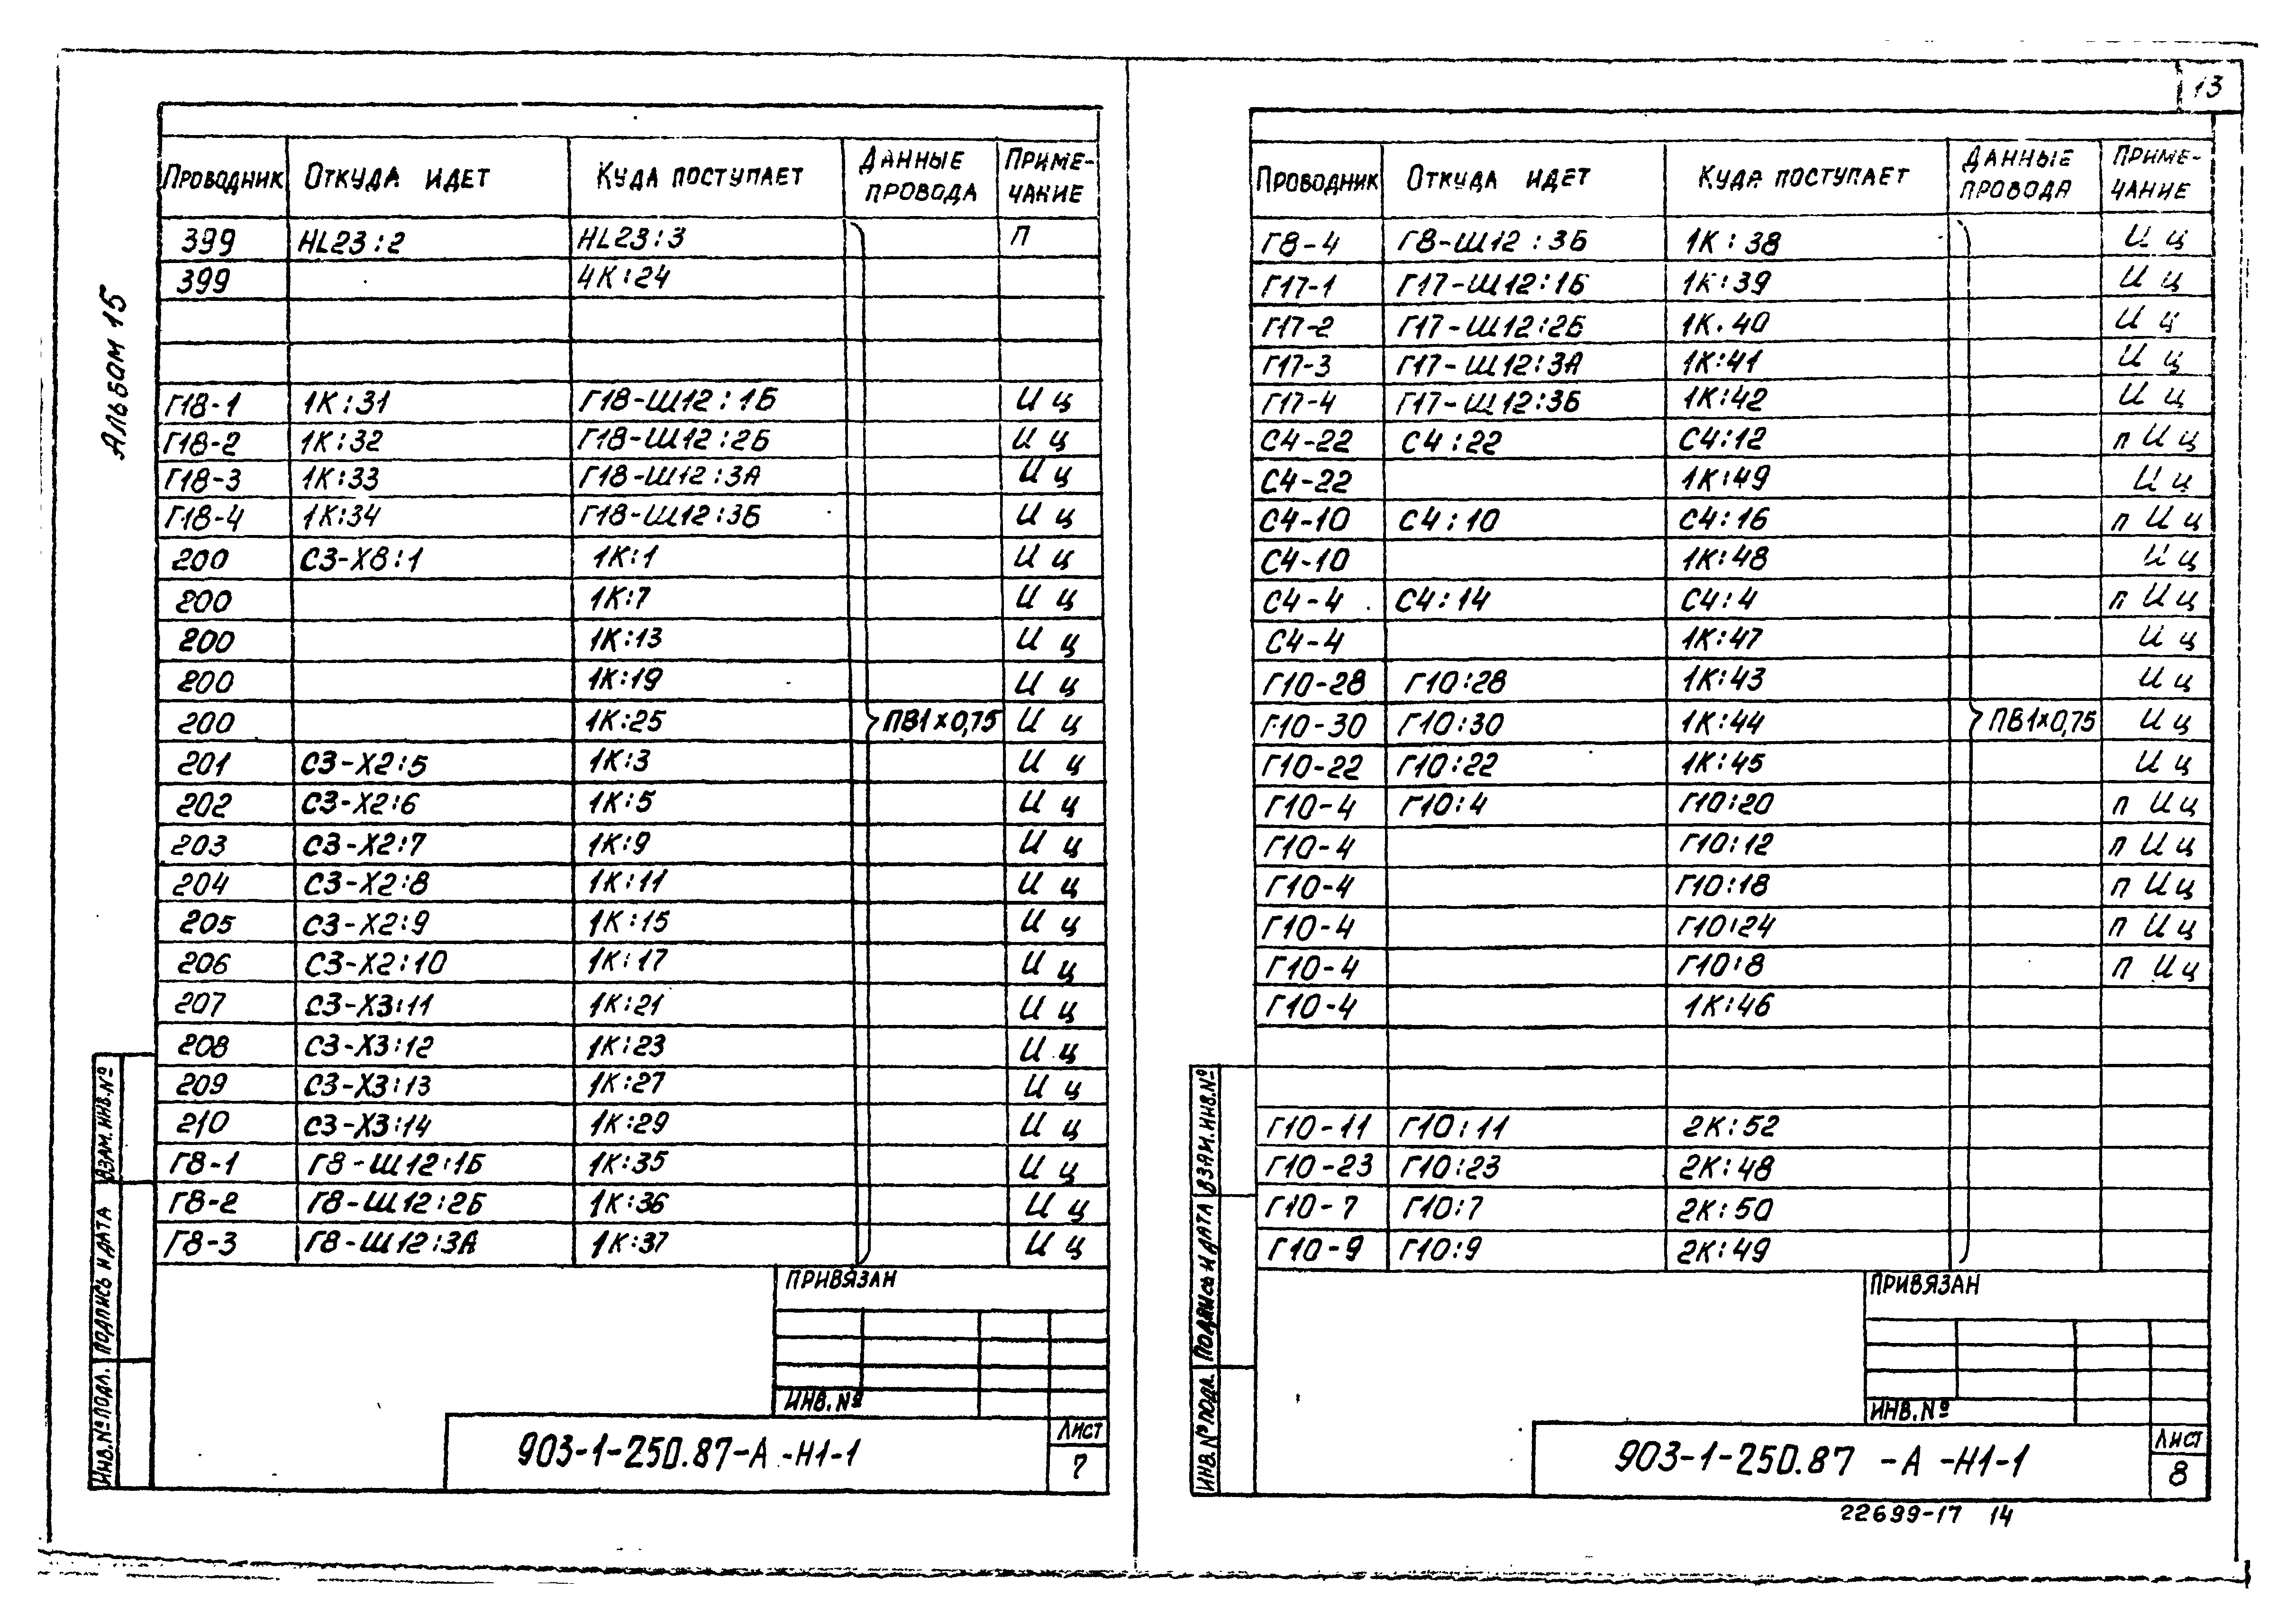 13
Альбом 15
Проводник Откуда идет Куда поступает Данные провода Примечание
399 HL23:2 HL23:3 П
399 4К:24
Г18-1 1К:31 Г18-Ш12:1Б И ц
Г18-2 1К:32 Г18-Ш12:2Б И ц
Г18-3 1К:33 Г18-Ш12:3А И ц
Г18-4 1К:34 Г18-Ш12:3Б И ц
200 С3-Х8:1 1К:1 И ц
200 1К:7 И ц
200 1К:13 И ц
200 1К:19 И ц
200 1К:25 ПВ1х0,75 И ц
201 С3-Х2:5 1К:3 И ц
202 С3-Х2:6 1К:5 И ц
203 С3-Х2:7 1К:9 И ц
204 С3-Х2:8 1К:11 И ц
205 С3-Х2:9 1К:15 И ц
206 С3-Х2:10 1К:17 И ц
207 С3-Х3:11 1К:21 И ц
208 С3-Х3:12 1К:23 И ц
209 С3-Х3:13 1К:27 И ц
210 С3-Х3:14 1К:29 И ц
Г8-1 Г8-Ш12:1Б 1К:35 И ц
Г8-2 Г8-Ш12:2Б 1К:36 И ц
Г8-3 Г8-Ш12:3А 1К:37 И ц
Привязан
Инв.№
903-1-250.87-А-Н1-1
Лист
7
Инв.№подл. Подпись и дата Взам.инв.№
Проводник Откуда идет Куда поступает Данные провода Примечание
Г8-4 Г8-Ш12:3Б 1К:38 И ц
Г17-1 Г17-Ш12:1Б 1К:39 И ц
Г17-2 Г17-Ш12:2Б 1К.40 И ц
Г17-3 Г17-Ш12:3А 1К:41 И ц
Г17-4 Г17-Ш12:3Б 1К:42 И ц
С4-22 С4:22 С4:12 п И ц
С4-22 1К:49 И ц
С4-10 С4:10 С4:16 п И ц
С4-10 1К:48 И ц
С4-4 С4:14 С4:4 п И ц
С4-4 1К:47 И ц
Г10-28 Г10:28 1К:43 И ц
Г10-30 Г10:30 1К:44 ПВ1х0,75 И ц
Г10-22 Г10:22 1К:45 И ц
Г10-4 Г10:4 Г10:20 п И ц
Г10-4 Г10:12 п И ц
Г10-4 Г10:18 п И ц
Г10-4 Г10:24 п И ц
Г10-4 Г10:8 п И ц
Г10-4 1К:46
Г10-11 Г10:11 2К:52
Г10-23 Г10:23 2К:48
Г10-7 Г10:7 2К:50
Г10-9 Г10:9 2К:49
Привязан
Инв.№
903-1-250.87 -А -Н1-1
Лист
8
Инв.№подл. Подпись и дата Взам.инв.№
22699-17 14